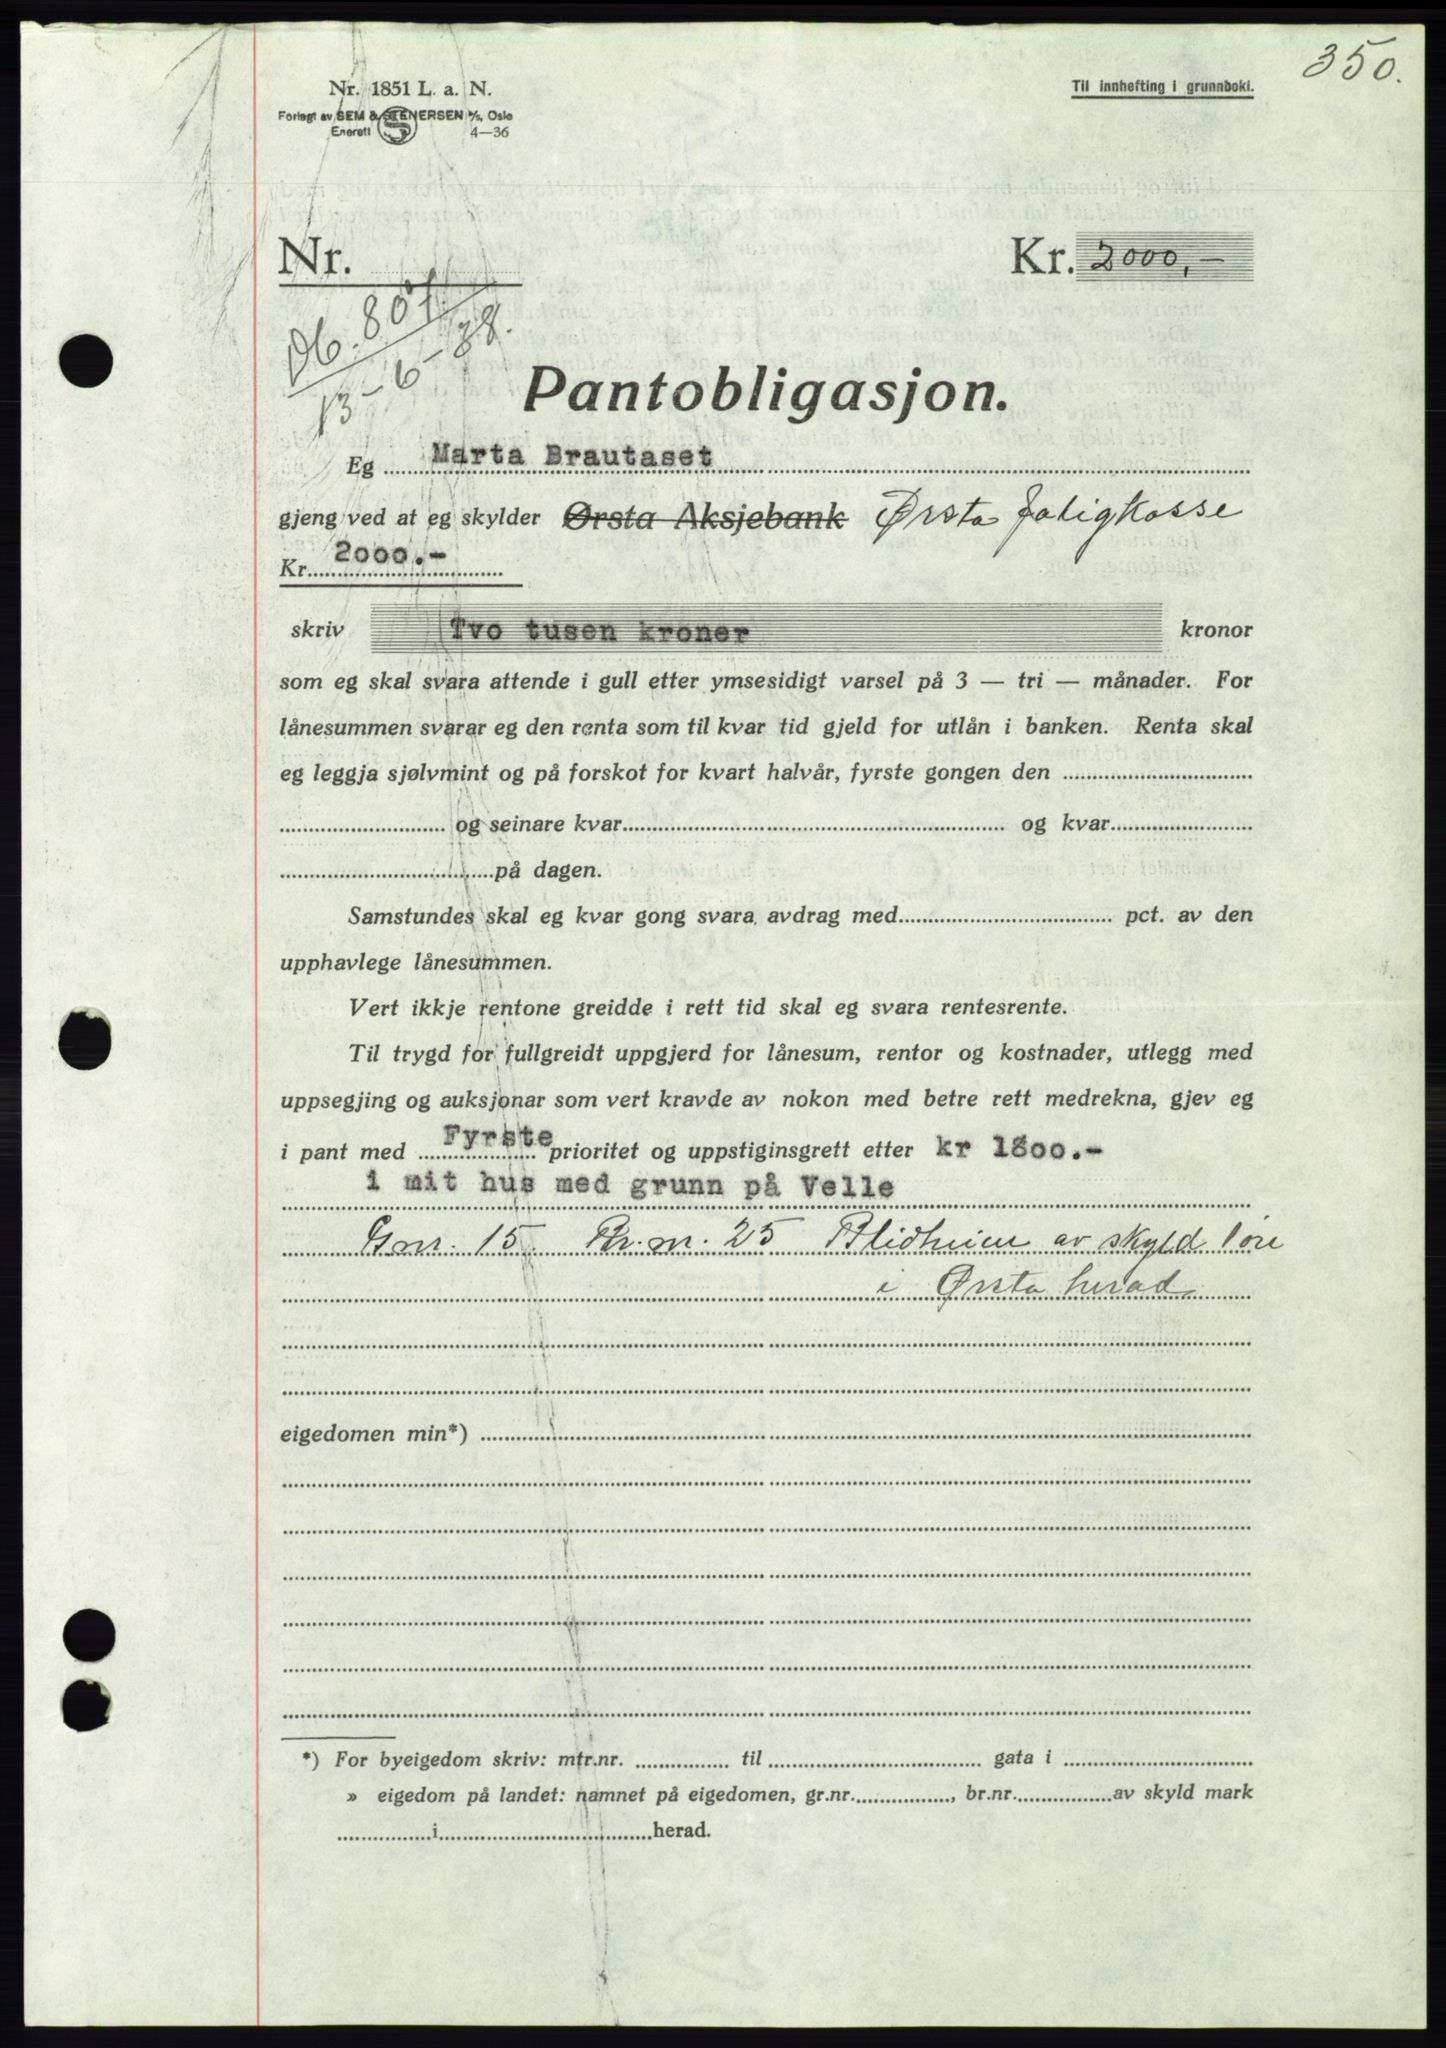 350.
Nr. 1851 L. a. N.
Til innhefting i grunnboki.
Forlagt av SEM & STENERSEN A/S, Oslo
Enerett 4—36
Nr.
Kr. 2000,-
Db. 807/
13-6-38.
Pantobligasjon.
Eg Marta Brautaset
gjeng ved at eg skylder Ørsta Aksjebank Ørsta fatigkasse
Kr. 2000.-
skriv Tvo tusen kroner kronor
som eg skal svara attende i gull etter ymsesidigt varsel på 3 — tri — månader. For
lånesummen svarar eg den renta som til kvar tid gjeld for utlån i banken. Renta skal
eg leggja sjølvmint og på forskot for kvart halvår, fyrste gongen den
og seinare kvar og kvar
på dagen.
Samstundes skal eg kvar gong svara avdrag med pct. av den
upphavlege lånesummen.
Vert ikkje rentone greidde i rett tid skal eg svara rentesrente.
Til trygd for fullgreidt uppgjerd for lånesum, rentor og kostnader, utlegg med
uppsegjing og auksjonar som vert kravde av nokon med betre rett medrekna, gjev eg
i pant med Fyrste prioritet og uppstiginsgrett etter kr 1800.-
i mit hus med grunn på Velle
Gnr. 15 Br.nr. 25 Blidheim av skyld 1 øre
i Ørsta herad
eigedomen min*)
*) For byeigedom skriv: mtr.nr. til gata i
» eigedom på landet: namnet på eigedomen, gr.nr. , br.nr. av skyld mark
i herad.